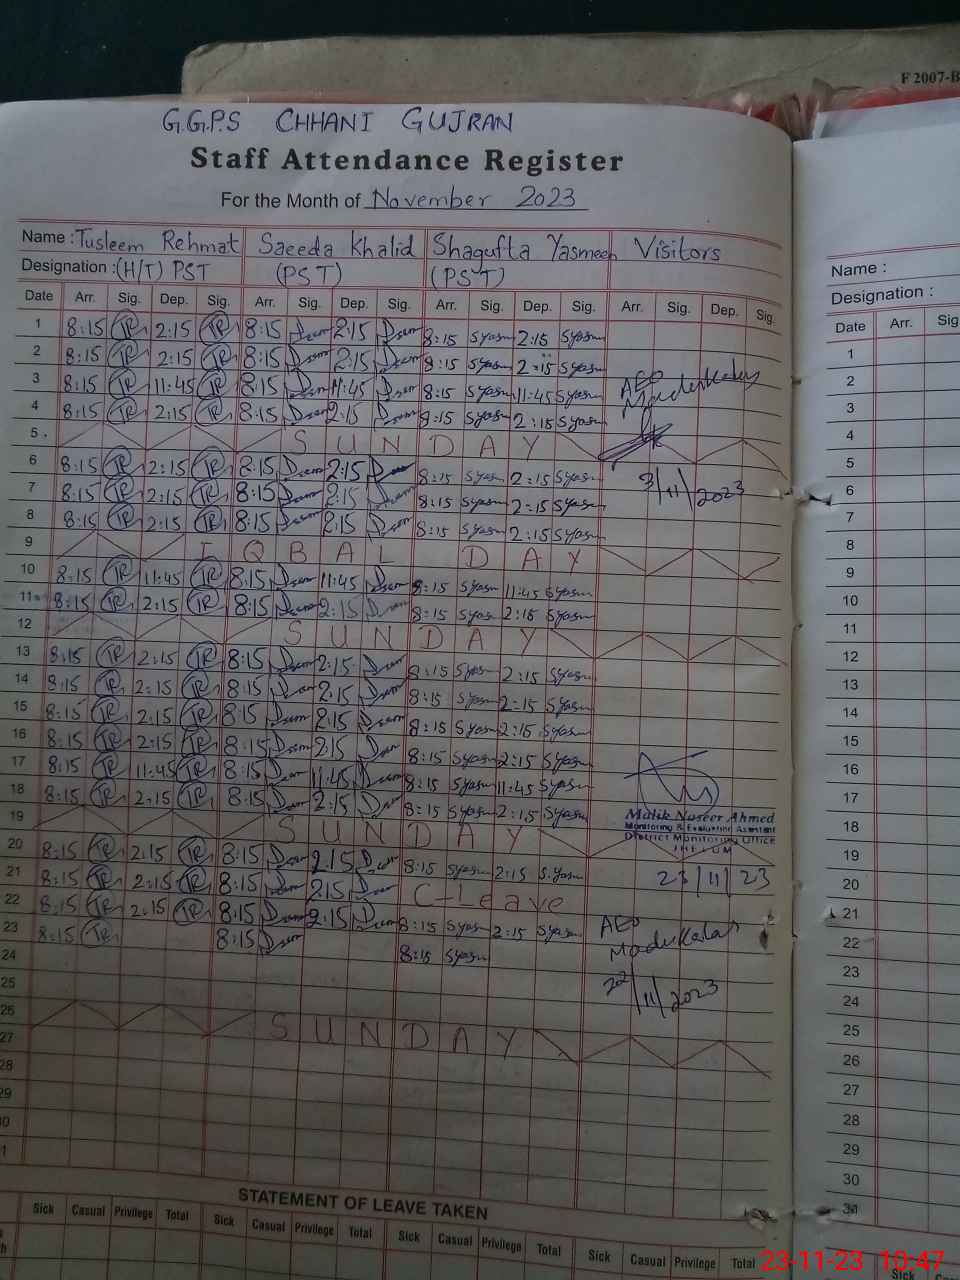 F 2007-B
G.G.P.S CHHANI GUJRAN
Staff Attendance Register
For the Month of November 2023
Name : Tusleem Rehmat Saeeda Khalid Shagufta Yasmeen Visitors
Designation : (H/T) PST (PST) (PST)
Date Arr. Sig. Dep. Sig. Arr. Sig. Dep. Sig. Arr. Sig. Dep. Sig. Arr. Sig. Dep. Sig.
1 8:15 TR 2:15 TR 8:15 2:15 8:15 Syasm 2:15 Syasm
2 8:15 TR 2:15 TR 8:15 2:15 8:15 Syasm 2:15 Syasm
3 8:15 TR 11:45 TR 8:15 11:45 8:15 Syasm 11:45 Syasm AEO
4 8:15 TR 2:15 TR 8:15 2:15 8:15 Syasm 2:15 Syasm
5 SUNDAY
6 8:15 TR 2:15 TR 8:15 2:15 8:15 Syasm 2:15 Syasm 3/11/2023
7 8:15 TR 2:15 TR 8:15 2:15 8:15 Syasm 2:15 Syasm
8 8:15 TR 2:15 TR 8:15 2:15 8:15 Syasm 2:15 Syasm
9 IQBAL DAY
10 8:15 TR 11:45 TR 8:15 11:45 8:15 Syasm 11:45 Syasm
11 8:15 TR 2:15 TR 8:15 2:15 8:15 Syasm 2:15 Syasm
12 SUNDAY
13 8:15 TR 2:15 TR 8:15 2:15 8:15 Syasm 2:15 Syasm
14 8:15 TR 2:15 TR 8:15 2:15 8:15 Syasm 2:15 Syasm
15 8:15 TR 2:15 TR 8:15 2:15 8:15 Syasm 2:15 Syasm
16 8:15 TR 2:15 TR 8:15 2:15 8:15 Syasm 2:15 Syasm
17 8:15 TR 11:45 TR 8:15 11:45 8:15 Syasm 11:45 Syasm
18 8:15 TR 2:15 TR 8:15 2:15 8:15 Syasm 2:15 Syasm
Malik Naseer Ahmed
Monitoring & Evaluation Assistant
District Monitoring Office
JHELUM
19 SUNDAY
20 8:15 TR 2:15 TR 8:15 2:15 8:15 Syasm 2:15 S.yasm 23/11/23
21 8:15 TR 2:15 TR 8:15 2:15 C-Leave
22 8:15 TR 2:15 TR 8:15 2:15 8:15 Syasm 2:15 Syasm AEO
23 8:15 TR 8:15 8:15 Syasm
24 22/11/2023
25
26 SUNDAY
27
28
29
30
31
STATEMENT OF LEAVE TAKEN
Sick Casual Privilege Total Sick Casual Privilege Total Sick Casual Privilege Total Sick Casual Privilege Total
Name :
Designation :
Date Arr. Sig.
1
2
3
4
5
6
7
8
9
10
11
12
13
14
15
16
17
18
19
20
21
22
23
24
25
26
27
28
29
30
31
Sick Cas
23-11-23 10:47